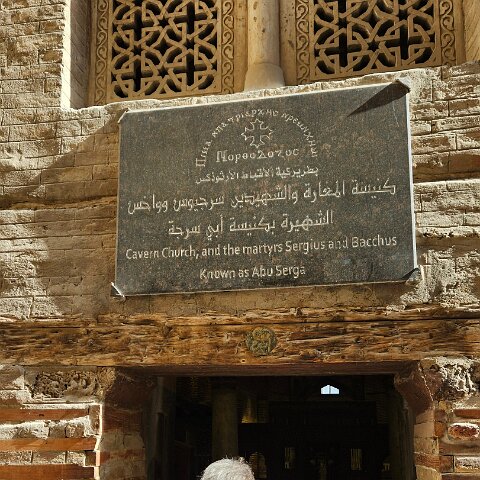 Ϯⲡⲁⲧⲣⲓⲁⲣⲭⲏ ⲛⲣⲉⲙⲛⲭⲏⲙⲓ
ⲛⲟⲣⲑⲟⲇⲟⲝⲟⲥ
بطريركية الأقباط الأرثوذكس
كنيسة المغارة والشهيدين سرجيوس وواخس
الشهيرة بكنيسة أبي سرجة
Cavern Church, and the martyrs Sergius and Bacchus
Known as Abu Serga